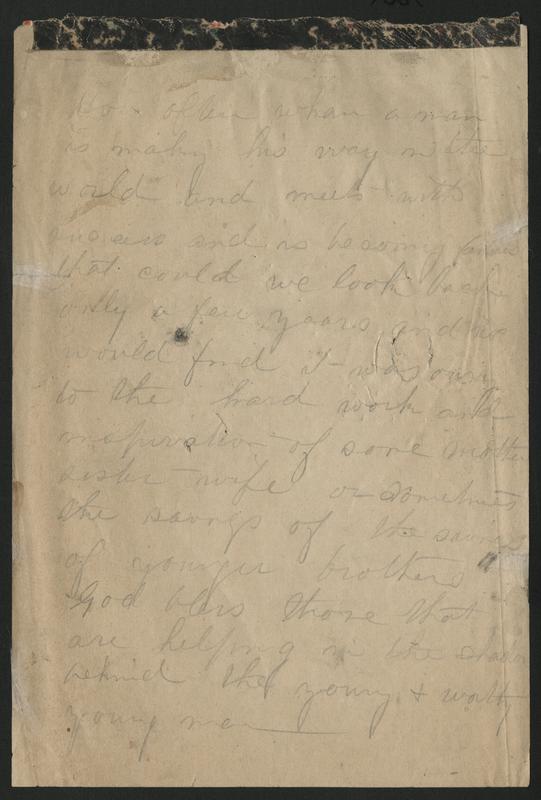 So often when a man
is making his way in the
world and meets with
success and is becoming famous
that could we look back
only a few years and we
would find it was owing
to the hard work and
inspiration of some mother
sister wife or sometimes
the savings of the savings
of younger brothers
God bless those that
are helping in the shadow
behind the young & worthy
young man